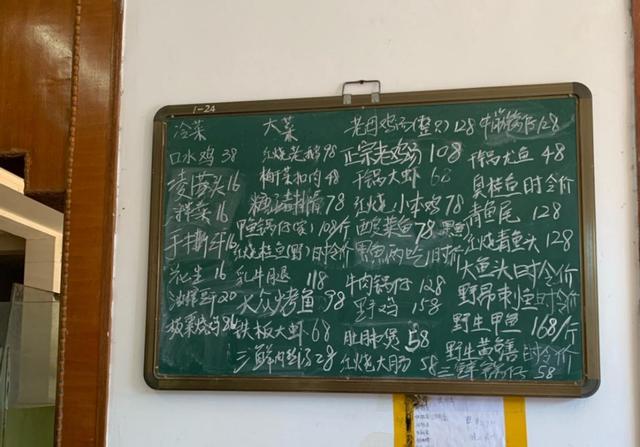 1-24
冷菜
口水鸡 38
16
拌菜 16
手撕牛 16
花生 16
20
板栗烧鸡 86
大菜
红烧 98
梅菜扣肉 48
排骨 78
锅仔(家) 108/斤
红烧桂鱼(野)时令价
乳牛腿 118
大众烤鱼 98
铁板大虾 68
三鲜肉丝 28
老母鸡汤(整只) 128
正宗老鸡汤 108
干锅大虾 68
红烧小本鸡 78
酸菜鱼 78 黑鱼
黑鱼两吃 时价
牛肉锅仔 128
野鸡 158
肚肺煲 58
红烧大肠 58
锅仔 128
干锅尤鱼 48
臭桂鱼 时令价
青鱼尾 128
红烧青鱼头 128
大鱼头 时令价
野昂刺 时令价
野生甲鱼 168/斤
野生黄鳝 时令价
三鲜锅仔 58